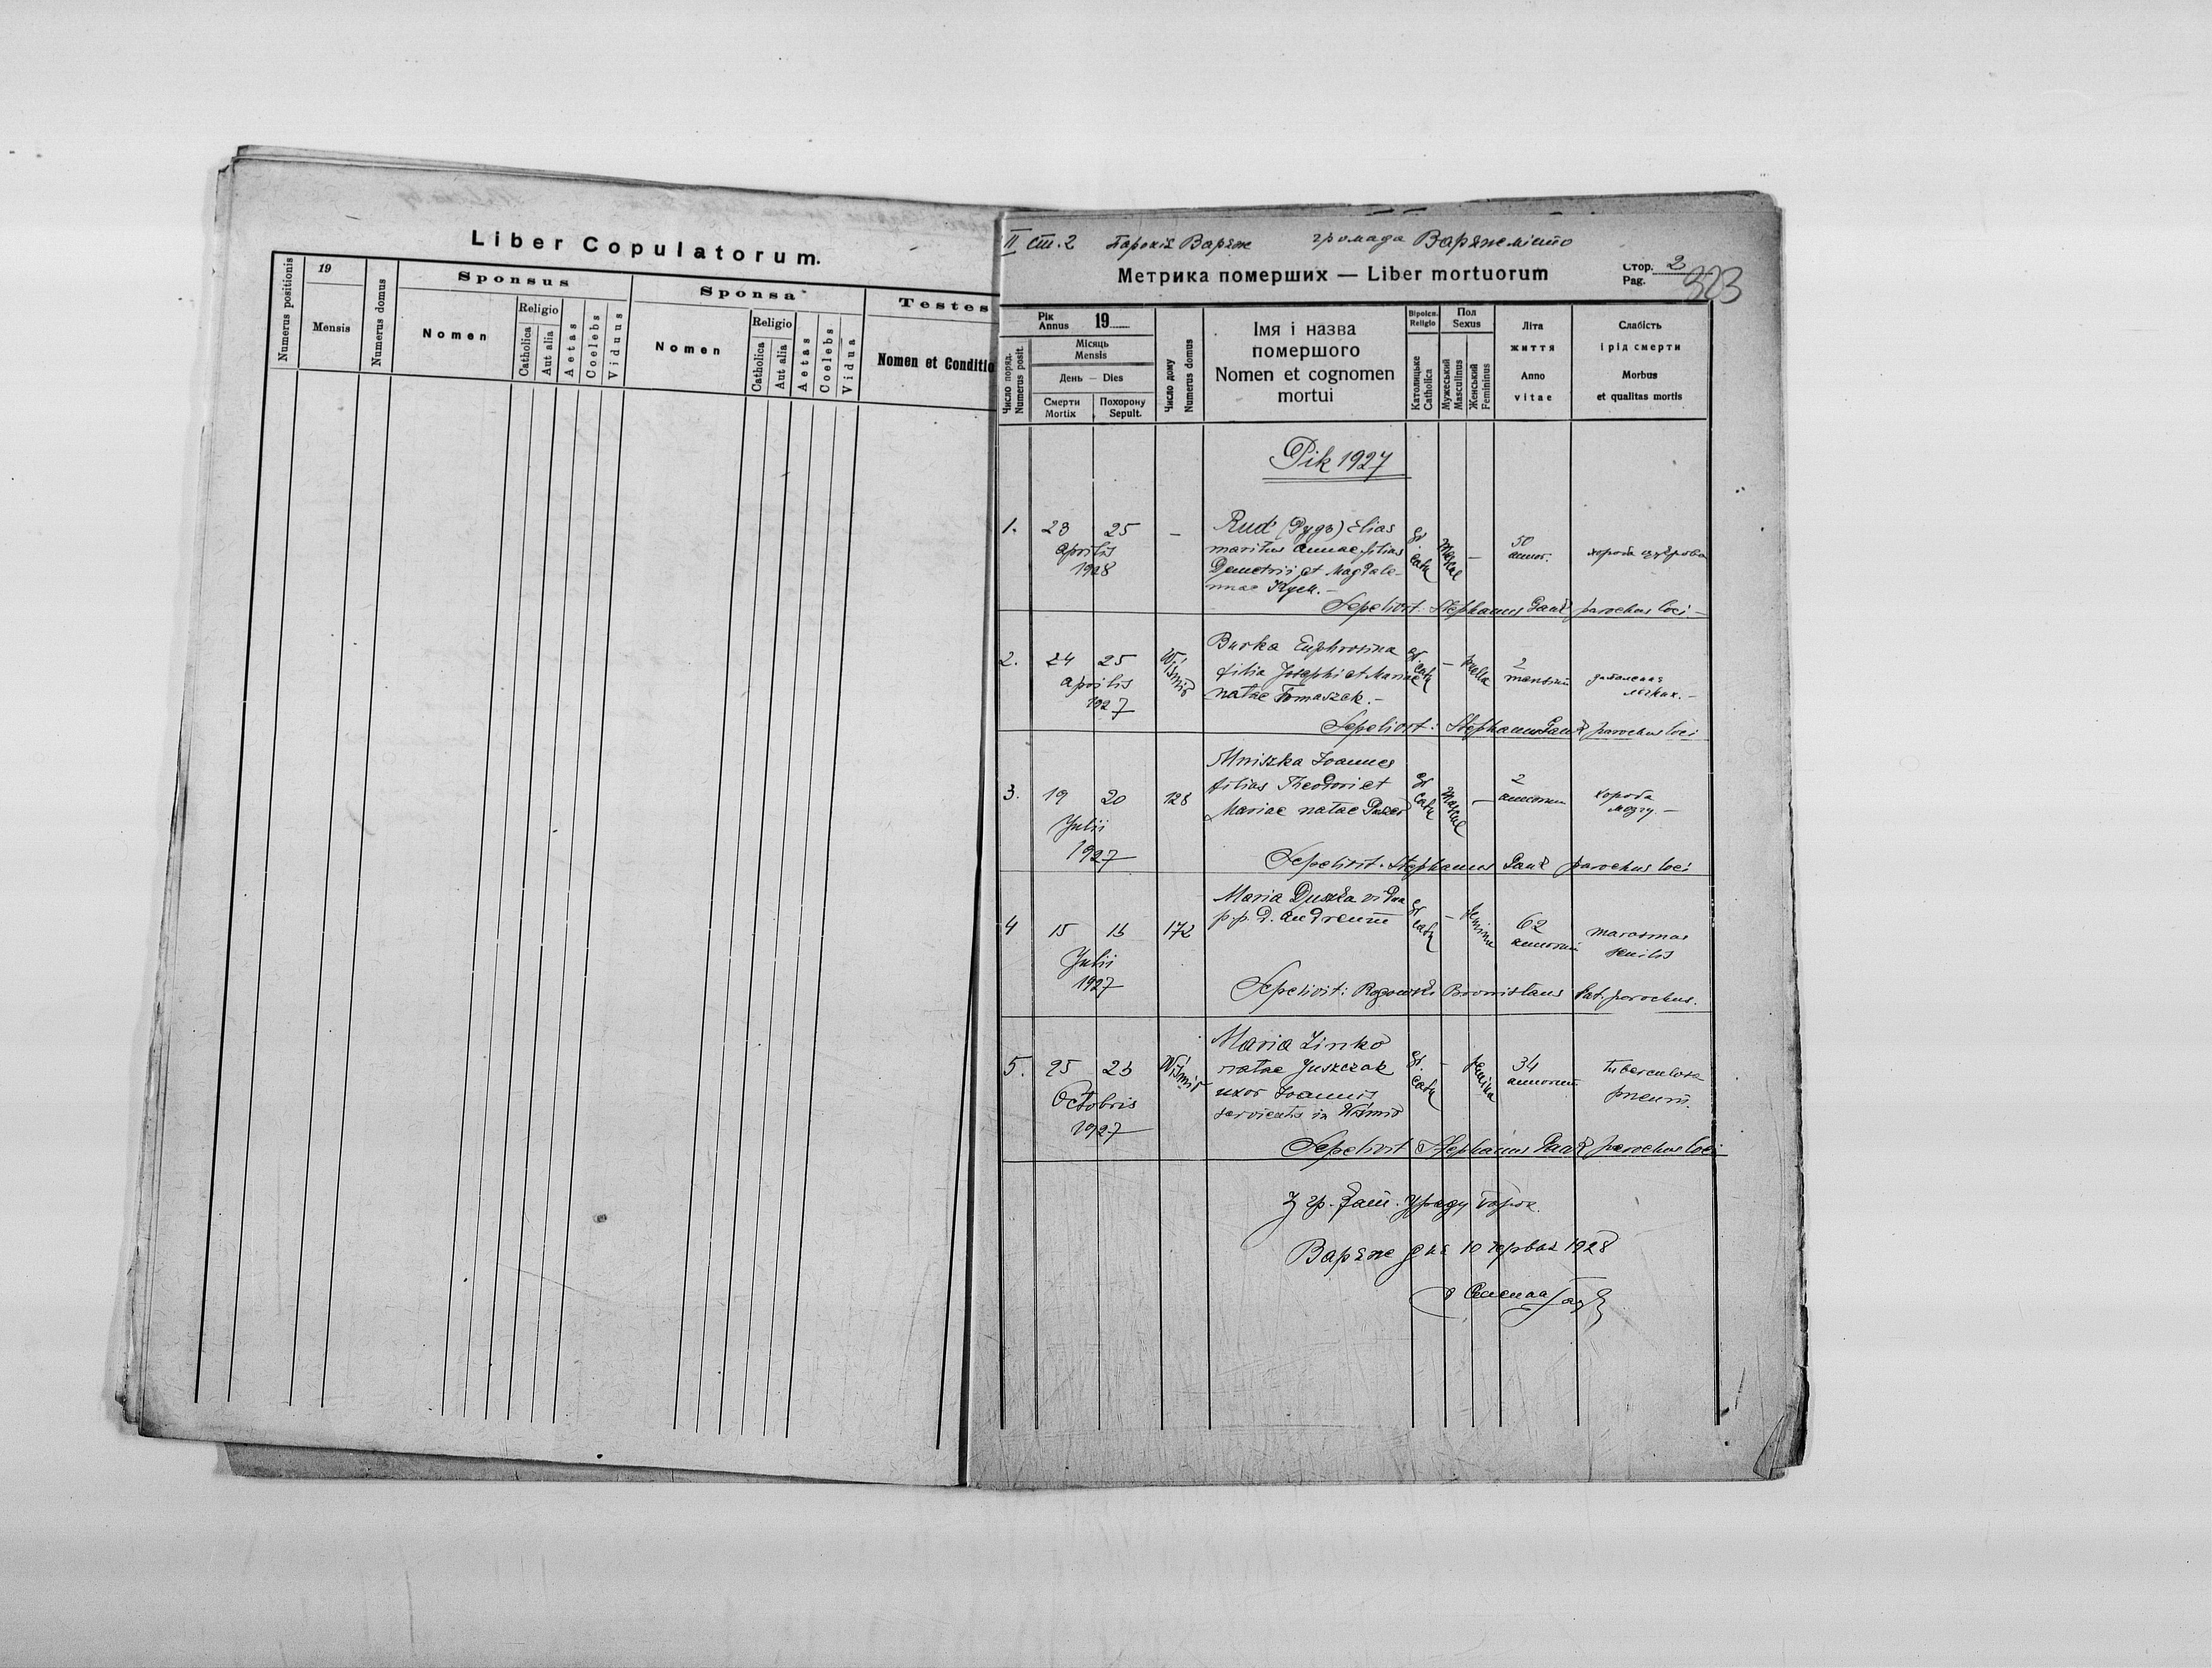 Liber Copulatorum.
Numerus positionis
19
Mensis
Numerus domus
Sponsus
Nomen
Religio
Catholica
Aut alia
Aetas
Coelebs
Viduus
Sponsa
Nomen
Religio
Catholica
Aut alia
Aetas
Coelebs
Vidua
Testes
Nomen et Conditio
II ст. 2 Парохія Варяж громада Варяж місто
Метрика померших — Liber mortuorum
Стор. 2
Pag.
323
Число поряд.
Numerus posit.
Рік
Annus 19
Місяць
Mensis
День — Dies
Смерти
Mortix
Похорону
Sepult.
Число дому
Numerus domus
Імя і назва
помершого
Nomen et cognomen
mortui
Віроісп.
Religio
Католицьке
Catholica
Пол
Sexus
Мужеський
Masculinus
Женський
Femininus
Літа
життя
Anno
vitae
Слабість
і рід смерти
Morbus
et qualitas mortis
Рік 1927
1. 23 25 — Rud (Рудъ) Elias
maritus Annae filius
Demetrii et Magdale-
nae
aprilis
1928
gr. cath. mascul — 50
annor.
хороба
Sepelivit: Stephanus parochus loci —
2. 24 25
aprilis
1927
Burka Euphrosina
filia Josephi et Mariae
natae Tomaszek. —
gr. cath — puella 2
mensium
запалення
легких. —
Sepelivit: Stephanus parochus loci
3. 19 20 128
Julii
1927
Mniszka Joannes
filius Theodori et
Mariae natae
gr. cath mascul — 2
annorum
хороба
мозгу. —
Sepelivit: Stephanus parochus loci
4 15 16 172
Julii
1927
Maria Duszka vidua
p. p. D. Andream
gr. cath — femina 62
annorum
marasmus
senilis
Sepelivit: Rogowski Bronislaus lat. parochus.
5. 25 26
Octobris
1927
Maria Zinko
natae Juszczak
uxor Joannis
servientis in
gr. cath — femina 34
annorum
tuberculosa
pneum.
Sepelivit Stephanus parochus loci
З гр. кат. Уряду парох.
Варяж дня 10 червня 1928